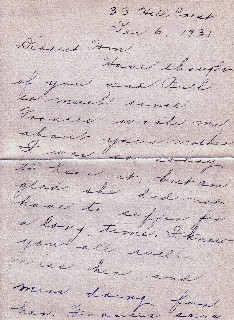 Dec 6, 1931
Have thought
of you and
so much since
Frances wrote me
about your mother
I was so sorry
to hear it, but am
glad she did not
have to suffer for
a long time. I know
you all will
miss her and
miss doing for
her. Frances